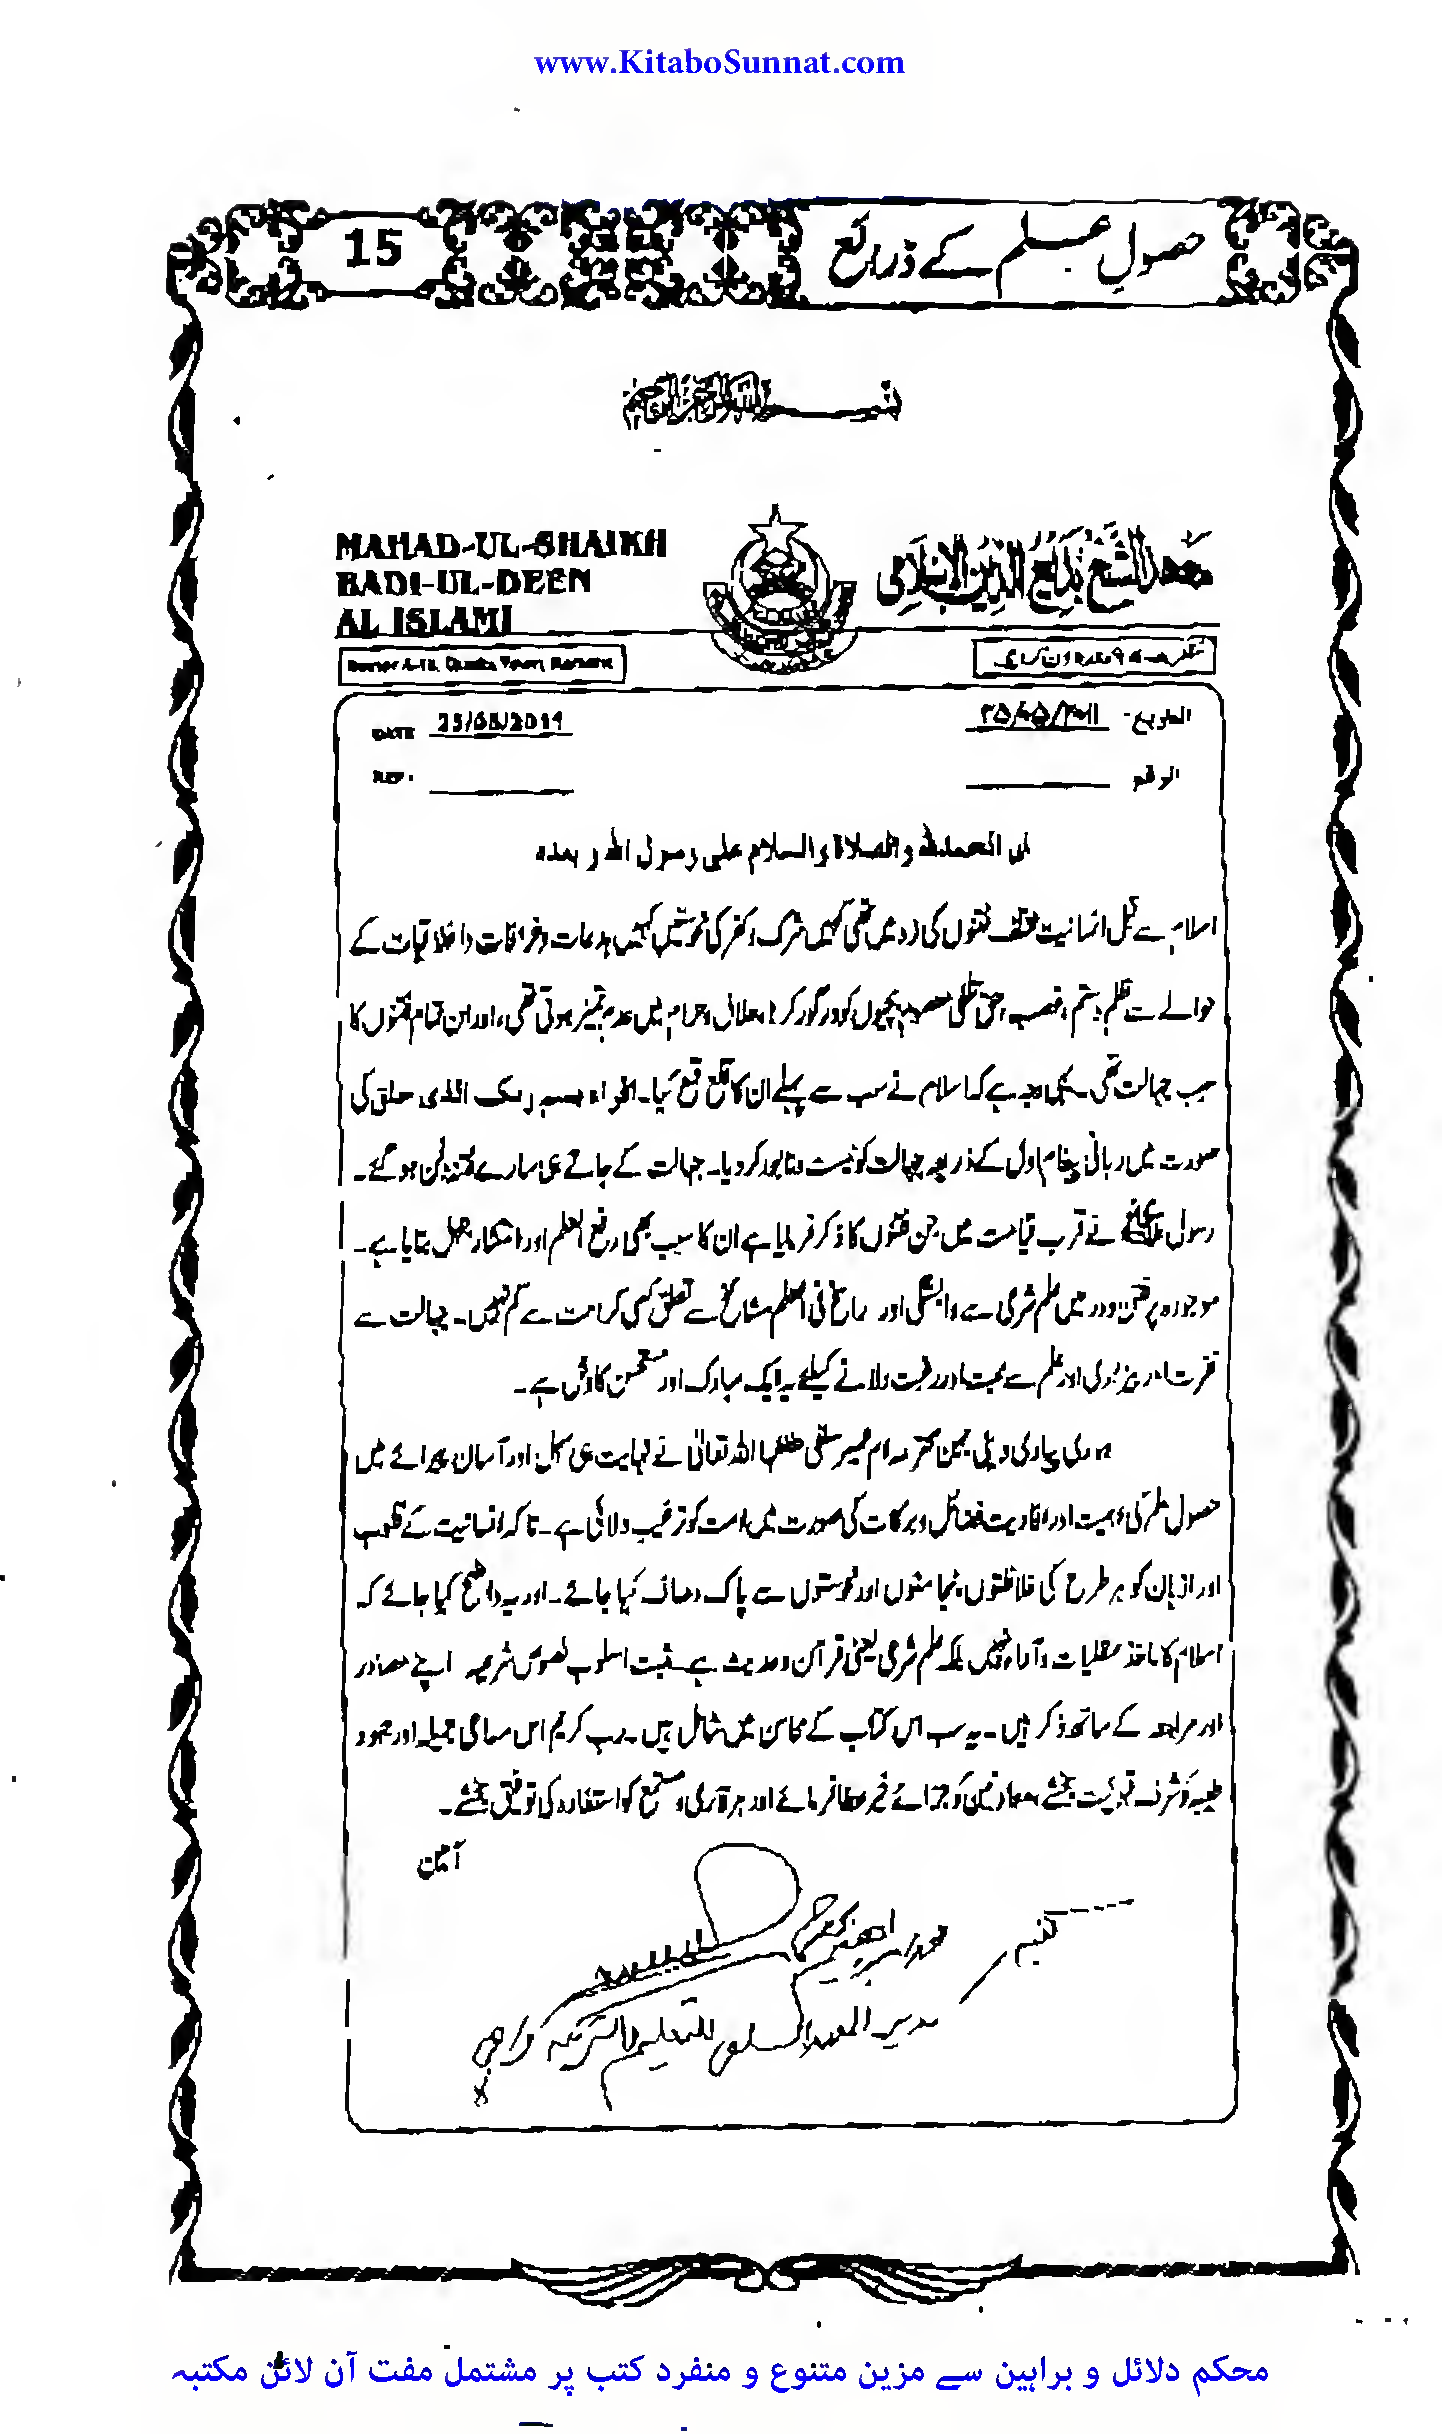 www.KitaboSunnat.com
حصولِ علم کے ذرائع
15
بسم اللہ الرحمن الرحیم
MAHAD-UL-SHAIKH
BADI-UL-DEEN
AL ISLAMI
معهد الشيخ بديع الدين الإسلامي
DATE 25/05/2011
التاريخ- ۲۵/۰۵/۲۰۱۱
REF:
الرقم
ان الحمدلله والصلاة والسلام علی رسول الله و بعده
اسلام سے قبل انسانیت مختلف فتنوں کی زد میں تھی کہیں شرک و کفر کی نحوستیں کہیں بدعات و خرافات و اخلاقیات کے
حوالے سے ظلم و ستم، غصب، حق تلفی معصوم بچیوں کو درگور کرنا، حلال و حرام میں عدم تمیز ہوتی تھی، اور ان تمام فتنوں کا
سبب جہالت تھی یہی وجہ ہے کہ اسلام نے سب سے پہلے ان کا قلع قمع کیا۔ اقراء بسم ربک الذی خلق کی
صورت میں ربانی پیغام اول کے ذریعہ جہالت کو نیست و نابود کر دیا۔ جہالت کے جاتے ہی سارے فتنے دفن ہو گئے۔
رسول ﷺ نے قرب قیامت میں جن فتنوں کا ذکر فرمایا ہے ان کا سبب بھی رفع العلم اور انتشار جہل بتایا ہے۔
موجودہ پرفتن دور میں علم شرعی سے وابستگی اور راسخ فی العلم مشائخ سے تعلق کسی کرامت سے کم نہیں۔ جہالت سے
نفرت اور بیزاری اور علم سے محبت اور رغبت دلانے کیلئے یہ ایک مبارک اور مستحسن کاوش ہے۔
ہماری پیاری دینی بہن محترمہ ام عمیر سلفی حفظہا اللہ تعالیٰ نے نہایت ہی سہل اور آسان پیرائے میں
حصول علم کی اہمیت اور افادیت فضائل و برکات کی صورت میں امت کو ترغیب دلائی ہے۔ تاکہ انسانیت کے قلوب
اور اذہان کو ہر طرح کی غلاظتوں، نجاستوں اور نحوستوں سے پاک و صاف کیا جائے۔ اور یہ واضح کیا جائے کہ
اسلام کا ماخذ عقلیات و آراء نہیں بلکہ علم شرعی یعنی قرآن و حدیث ہے۔ مثبت اسلوب نصوص شرعیہ اپنے مصادر
اور مراجعہ کے ساتھ ذکر ہیں۔ یہ سب اس کتاب کے محاسن میں شامل ہیں۔ رب کریم اس مساعی جمیلہ اور جہود
طیبہ کو شرف قبولیت بخشے، معاونین کو جزائے خیر عطا فرمائے اور ہر قاری و مستمع کو استفادہ کی توفیق بخشے۔
آمین
مدیر المعہد السلفی للتعلیم والتربیہ کراچی
محکم دلائل و براہین سے مزین متنوع و منفرد کتب پر مشتمل مفت آن لائن مکتبہ